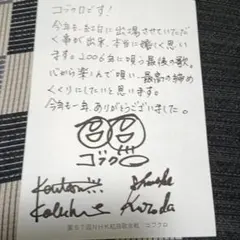 コブクロです!
今年も、紅白に出場させていただく
事が出来、本当に嬉しく思い
ます。2006年に唄う最後の歌。
心から楽しんで唄い、最高の締め
くくりにしたいと思います。
今年も一年ありがとうございました。
コブクロ
Kentaro
Shunsuke
Kobuchi
Kuroda
第57回NHK紅白歌合戦 コブクロ